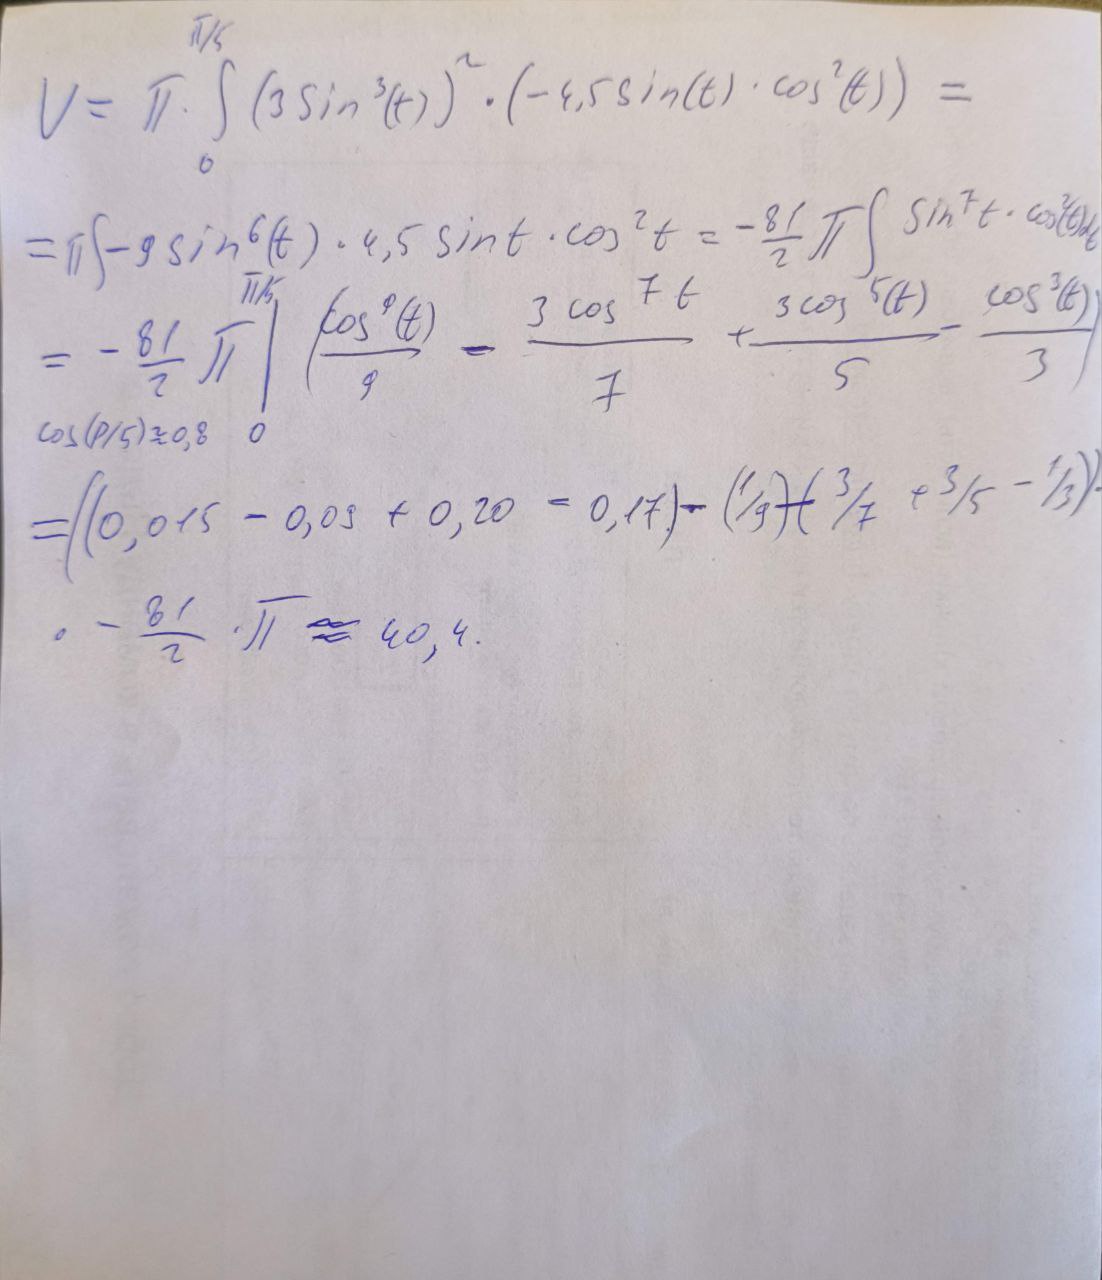 π/5
V = π · ∫ (3 sin³(t))² · (-4,5 sin(t) · cos²(t)) =
0
= π ∫ -9 sin⁶(t) · 4,5 sin t · cos² t = -81/2 π ∫ sin⁷ t · cos²(t) dt
π/5
= - 81/2 π | (cos⁹(t)/9 - 3 cos⁷ t/7 + 3 cos⁵(t)/5 - cos³(t)/3)
cos(P/5) ≈ 0,8 0
= ((0,015 - 0,09 + 0,20 - 0,17) - (1/9) - (3/7 + 3/5 - 1/3)) ·
· - 81/2 · π ≈ 40,4.